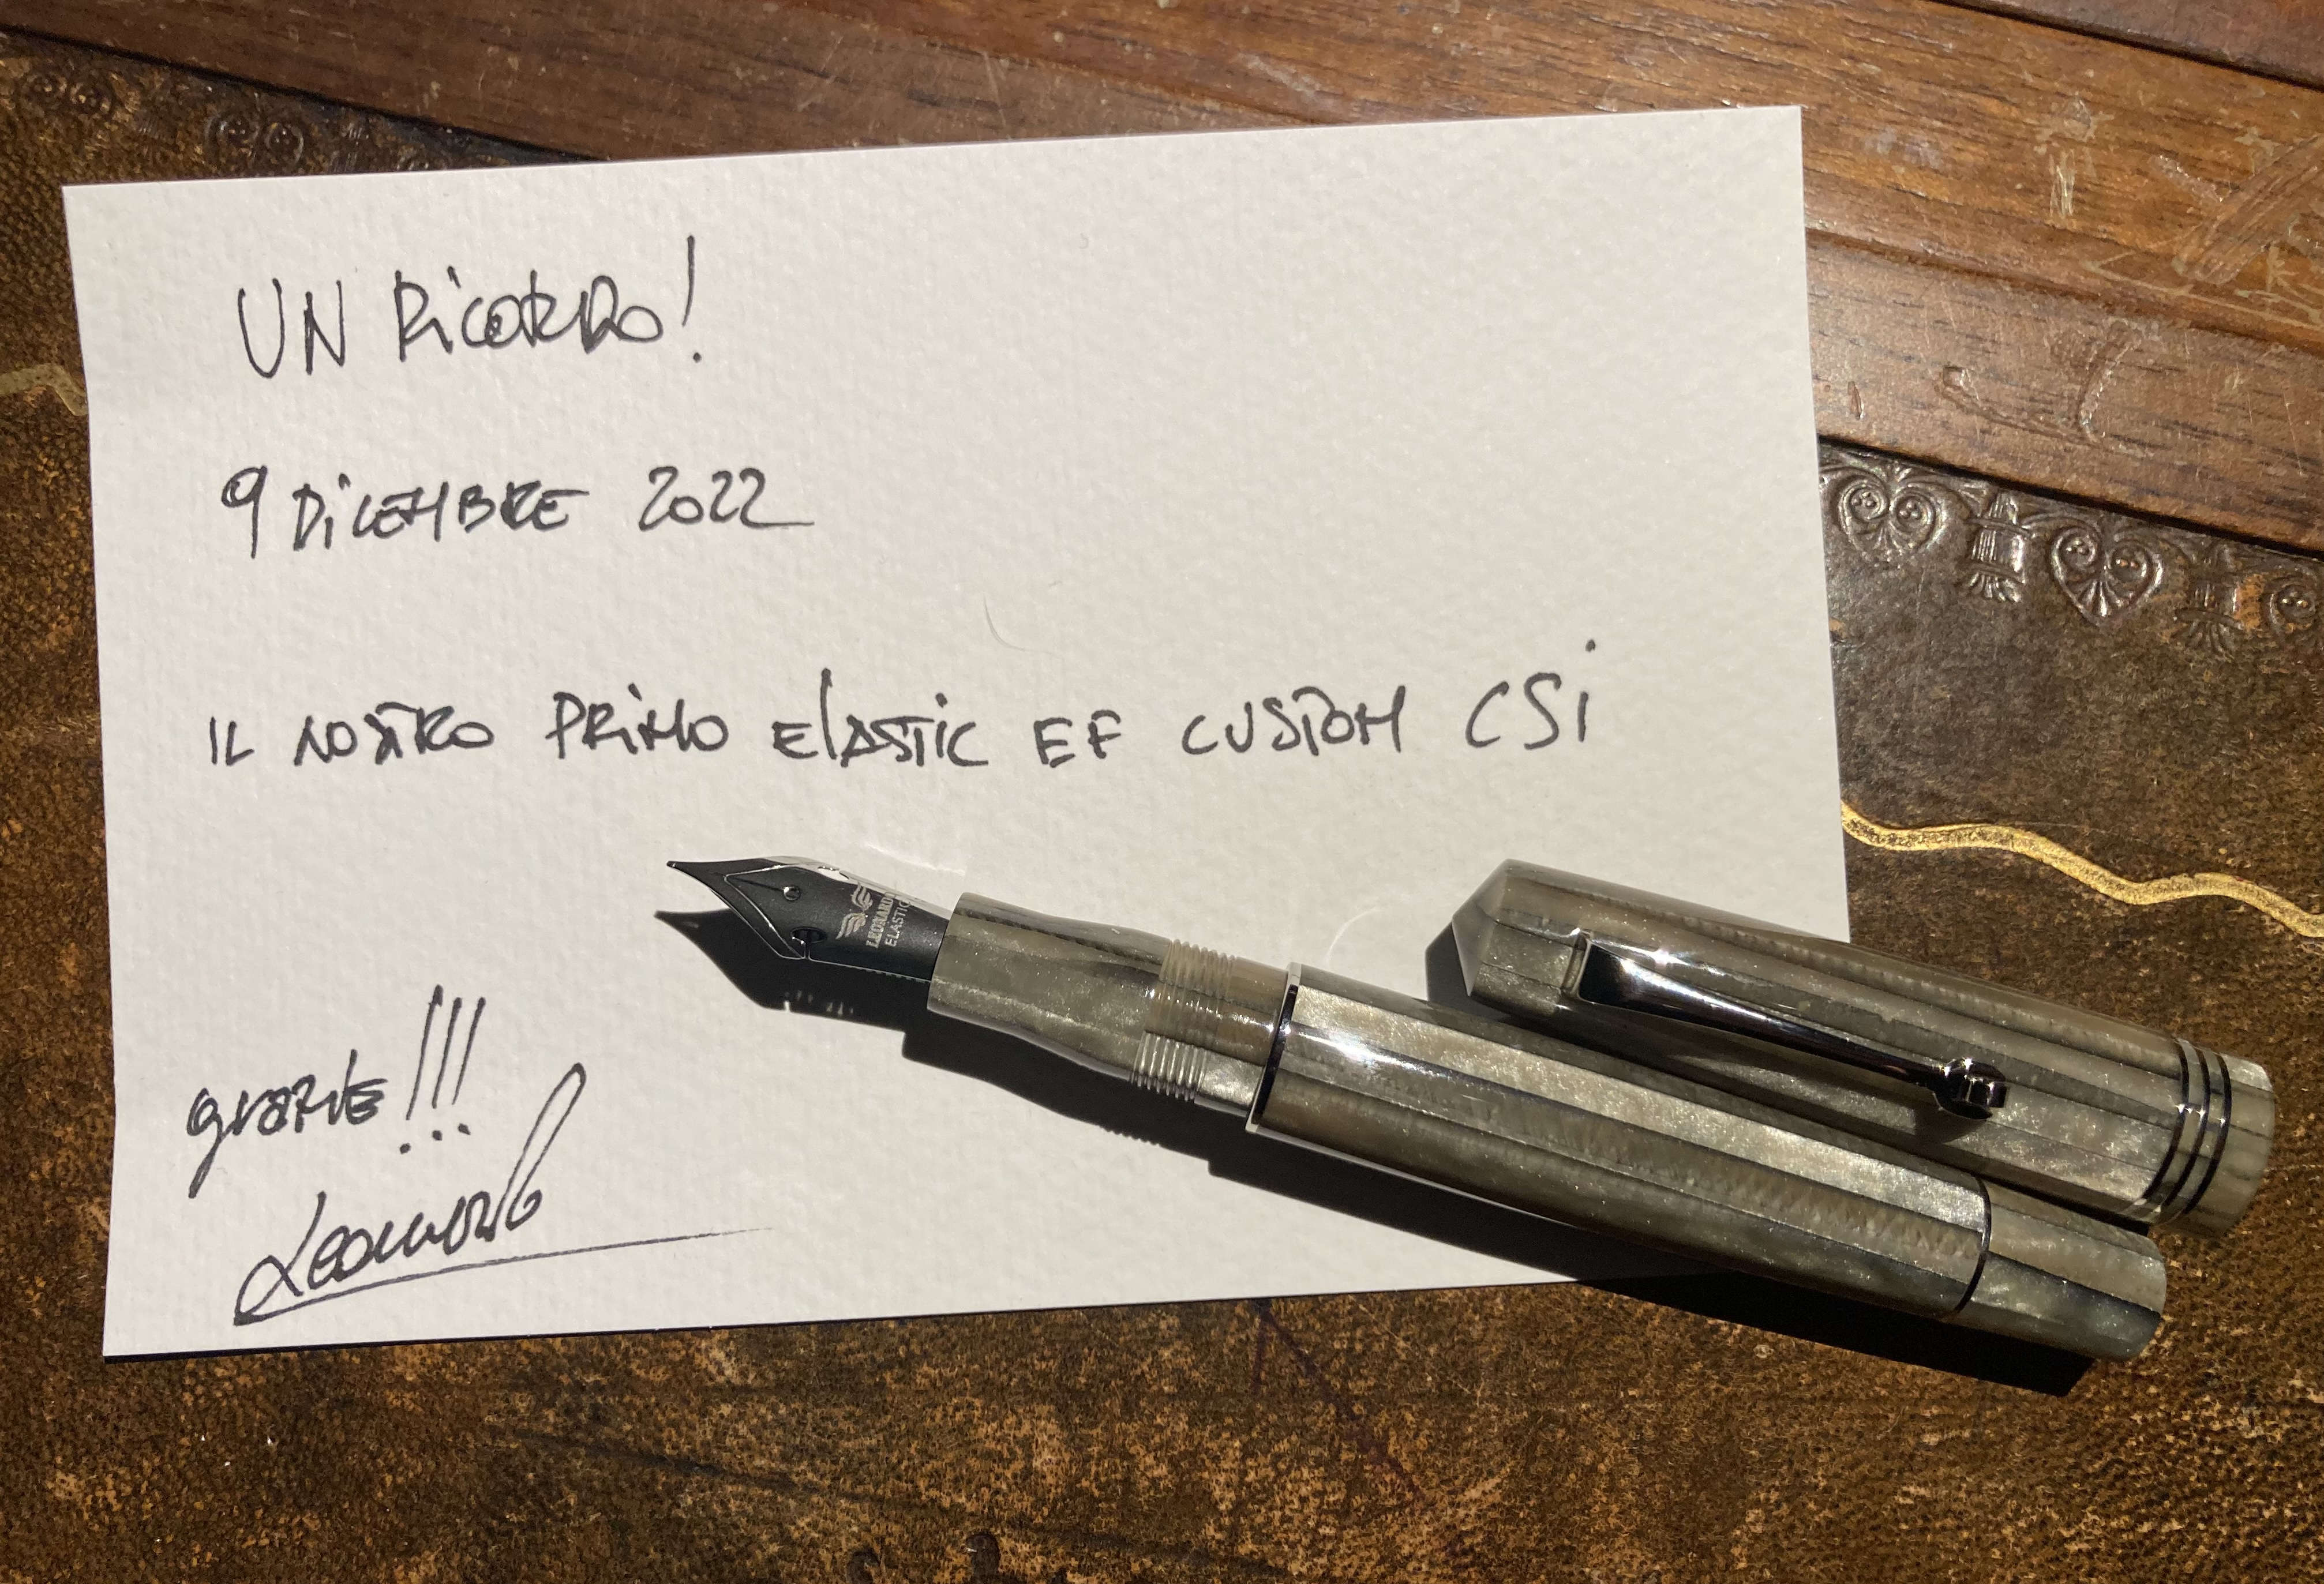 UN RiCORDO!
9 DiCEMBRE 2022
IL NOSTRO PRiMO ElASTiC EF CUSTOM CSi
LEONARDO
ELASTIC
grazie!!!
Leonardo